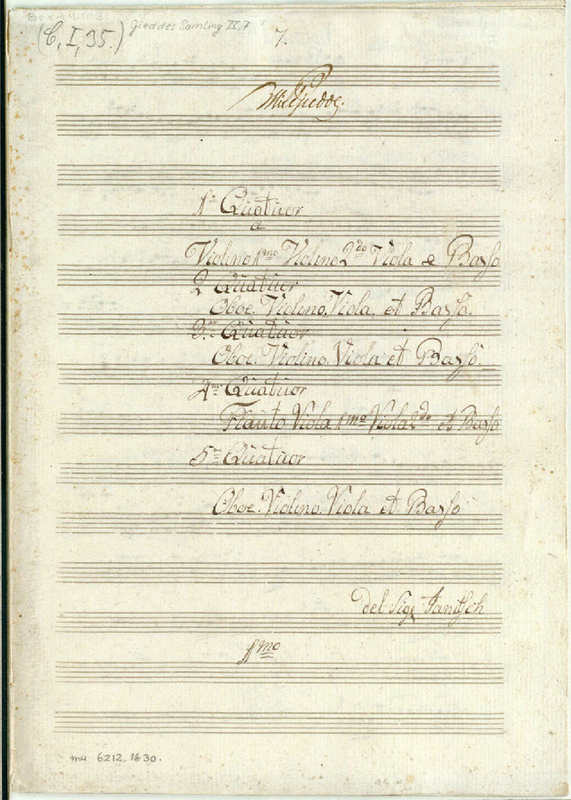 (C, I, 35.) Gieddes Samling II, 7
7.
1.º Quatuor
a
Violino 1mo Violino 2do Viola e Basso
2 Quatuor
Oboe. Violino. Viola. et Basso.
3. Quatuor
Oboe. Violino. Viola et Basso
4 Quatuor
Flauto Viola 1mo Viola 2do et Basso
5 Quatuor
Oboe. Violino. Viola et Basso
del Sigr Janitsch
1mo
mu 6212.1630.